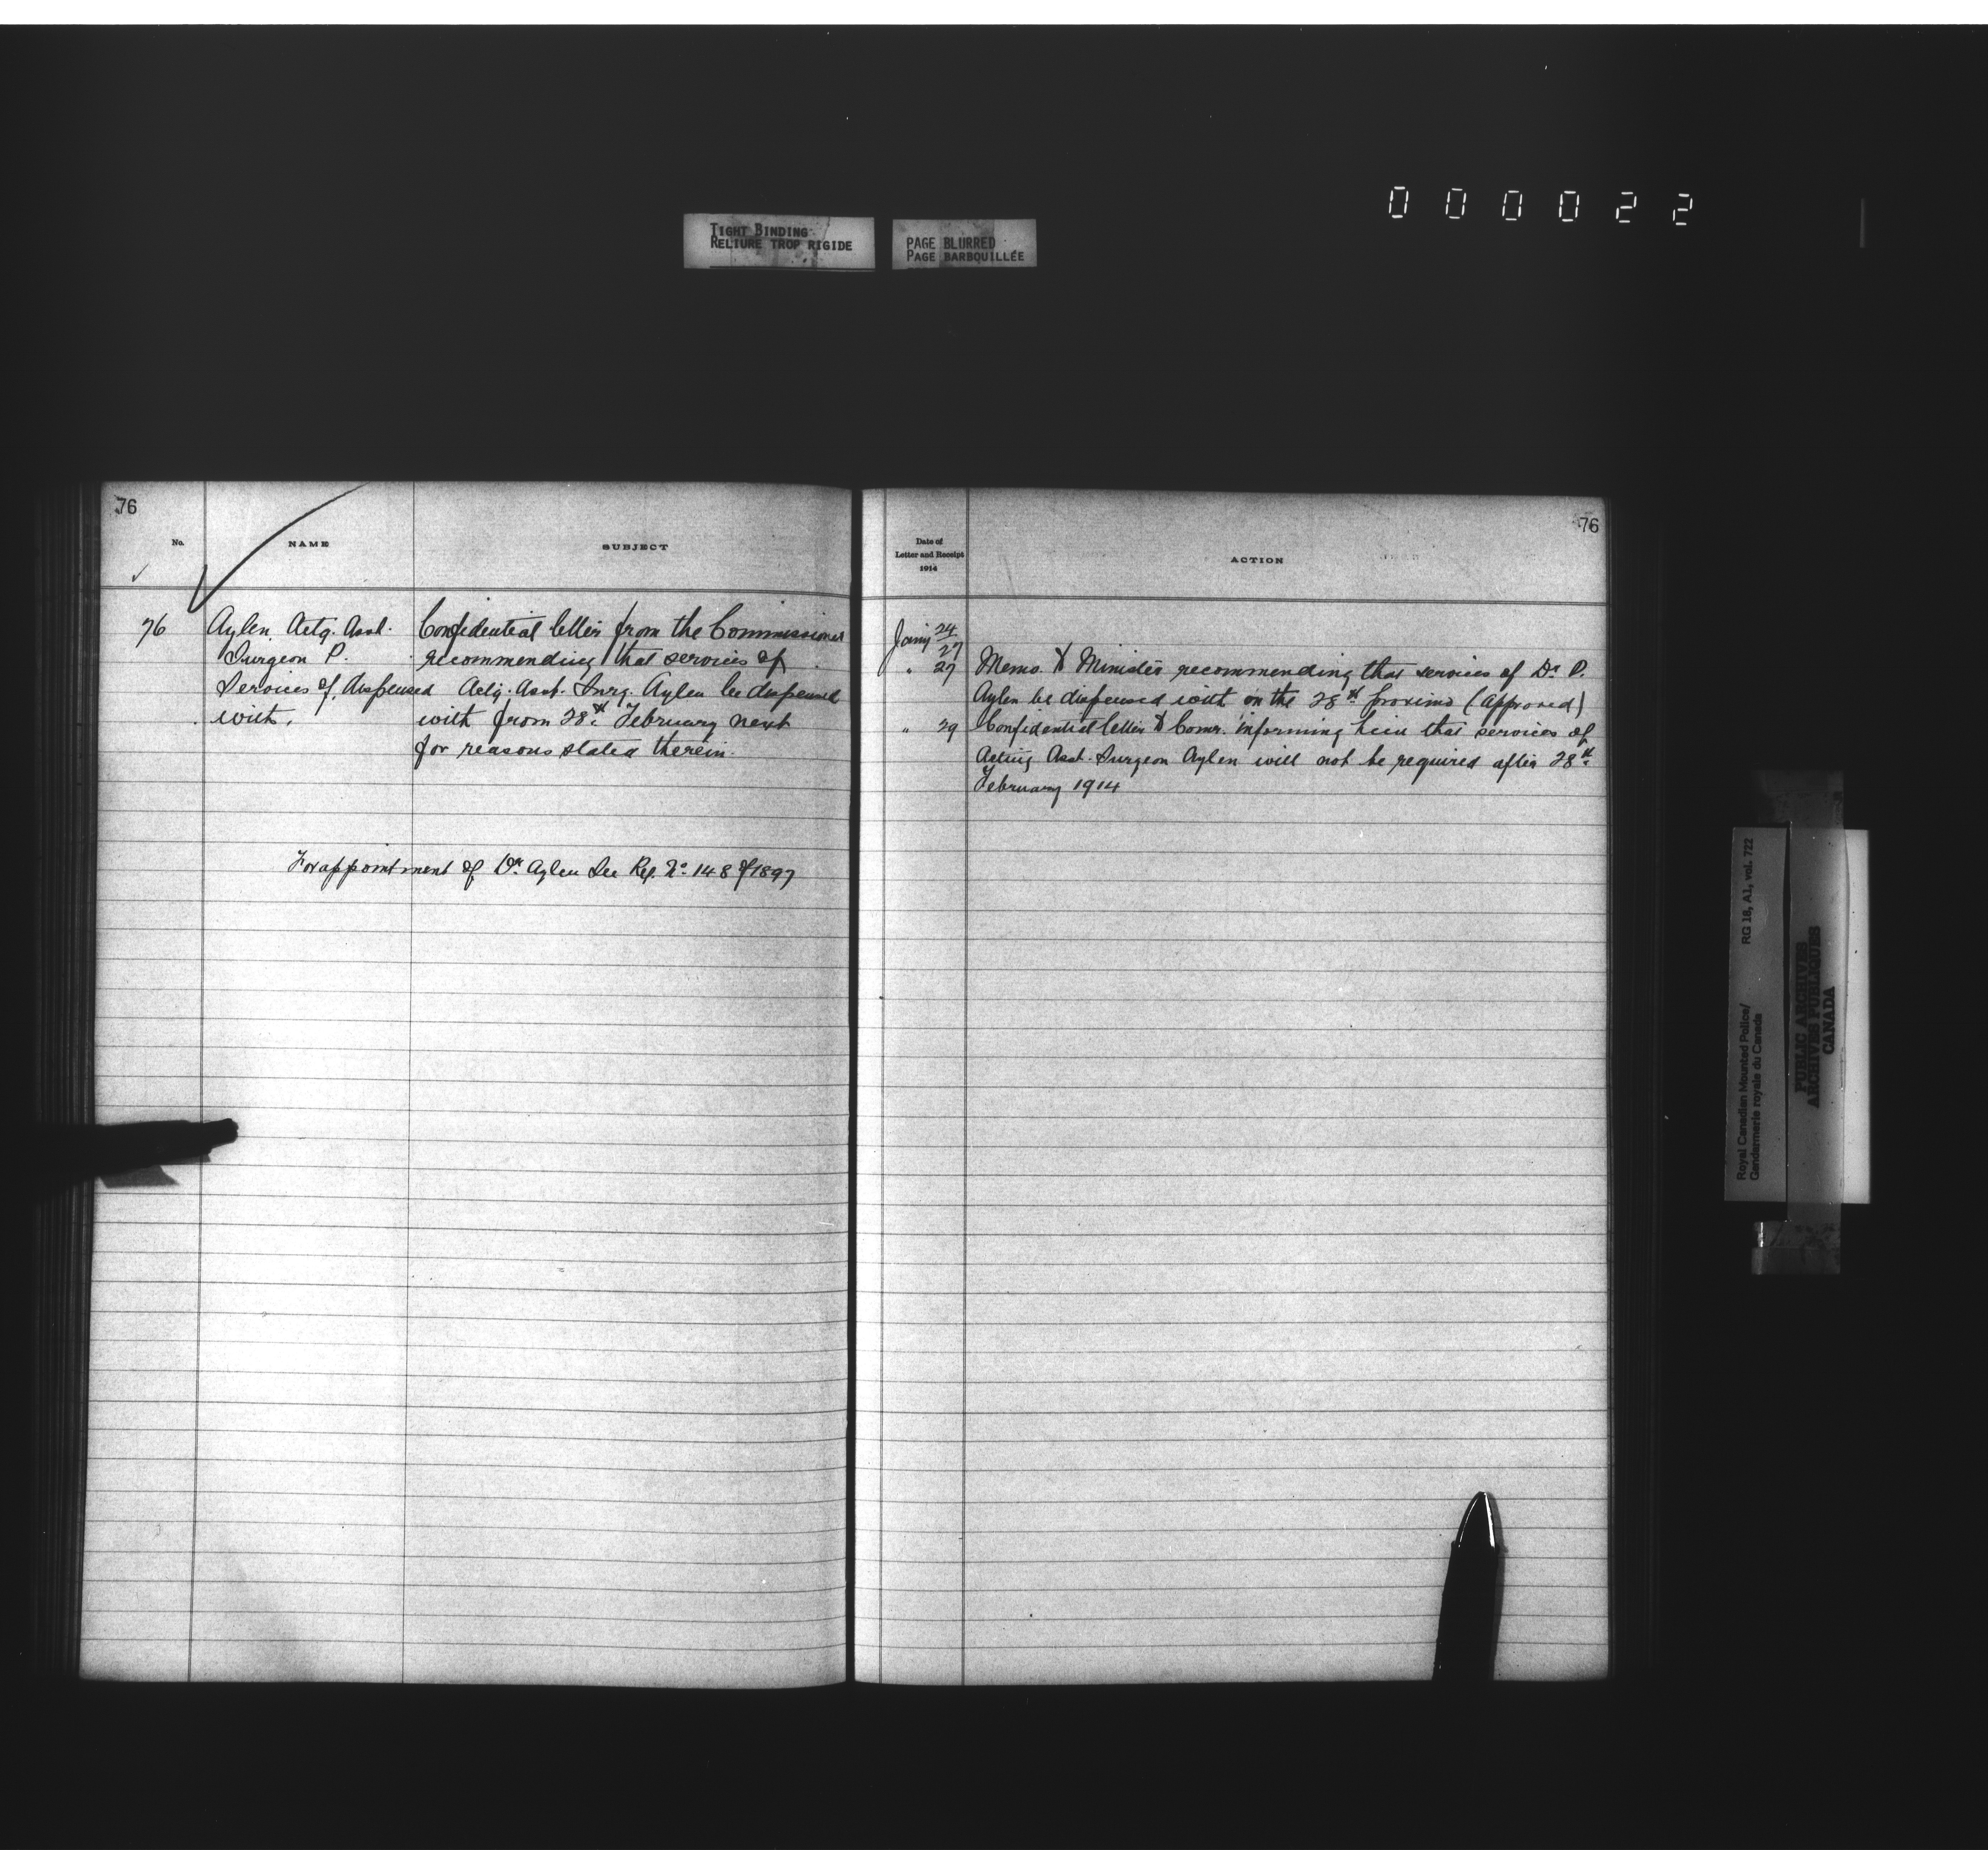 000022
TIGHT BINDING
RELIURE TROP RIGIDE
PAGE BLURRED
PAGE BARBOUILLÉE
76
No.
NAME
SUBJECT
76
Aylen. Actg. Asst.
Surgeon P.
Services of, dispensed
with.
Confidential letter from the Commissioner
recommending that services of
Actg. Asst. Surg. Aylen be dispensed
with from 28th February next
for reasons stated therein.
For appointment of Dr. Aylen See Reg. No. 148 of 1897
76
Date of
Letter and Receipt
1914
ACTION
Jany 24
27
" 27 Memo. to Minister recommending that services of Dr. P.
Aylen be dispensed with on the 28th proximo (Approved)
" 29 Confidential letter to Comr. informing him that services of
Acting Asst. Surgeon Aylen will not be required after 28th
February 1914
Royal Canadian Mounted Police/
Gendarmerie royale du Canada
RG 18, A1, vol. 722
PUBLIC ARCHIVES
ARCHIVES PUBLIQUES
CANADA